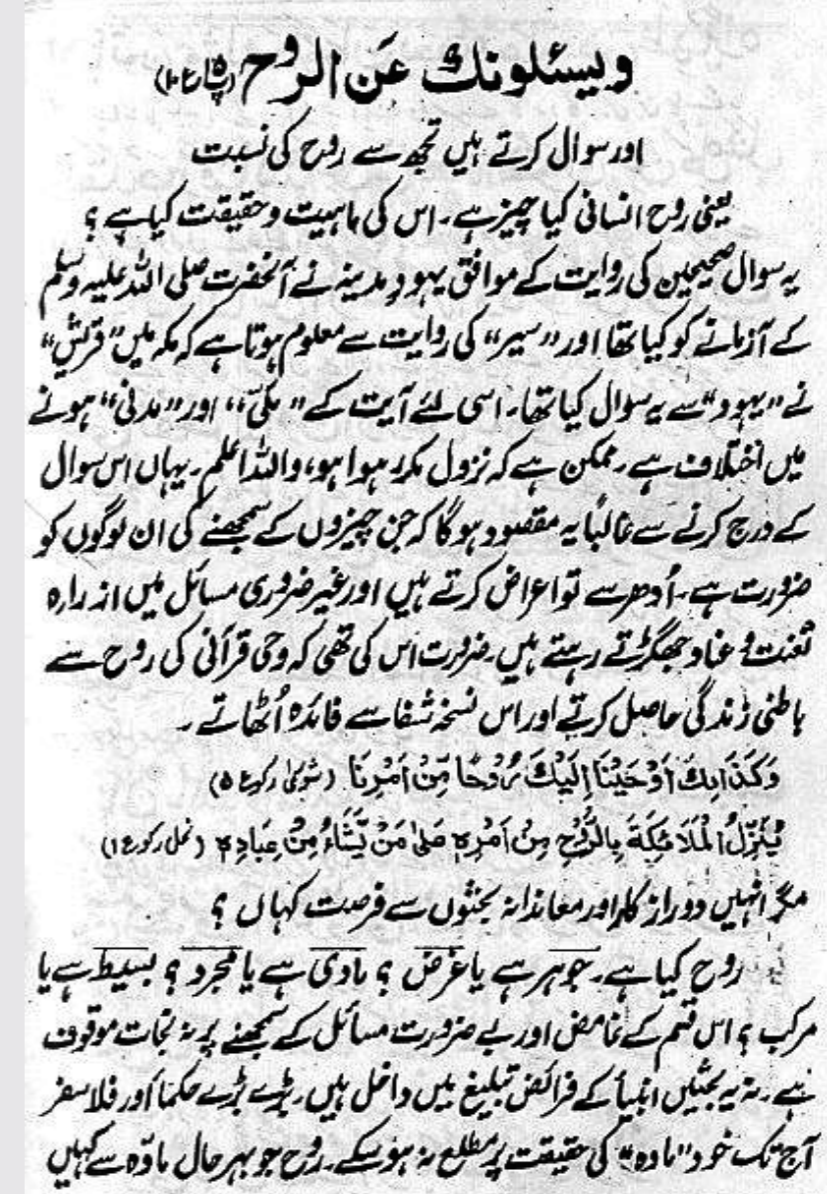 ویسئلونك عَن الروح (پ۱۵ ع ۱۰)
اور سوال کرتے ہیں تجھ سے روح کی نسبت
یعنی روح انسانی کیا چیز ہے۔ اس کی ماہیت و حقیقت کیا ہے ؟
یہ سوال صحیحین کی روایت کے موافق یہود مدینہ نے آنحضرت صلی اللہ علیہ وسلم
کے آزمانے کو کیا تھا اور "سیر" کی روایت سے معلوم ہوتا ہے کہ مکہ میں "قریش"
نے "یہود" سے یہ سوال کیا تھا۔ اسی لئے آیت کے "مکیّ" اور "مدنی" ہونے
میں اختلاف ہے۔ ممکن ہے کہ نزول مکرر ہوا ہو، واللہ اعلم۔ یہاں اس سوال
کے درج کرنے سے غالباً یہ مقصود ہوگا کہ جن چیزوں کے سمجھنے کی ان لوگوں کو
ضرورت ہے۔ اُدھر سے تو اعراض کرتے ہیں اور غیر ضروری مسائل میں از راہ
تعنت و عناد جھگڑتے رہتے ہیں۔ ضرورت اس کی تھی کہ وحی قرآنی کی روح سے
باطنی زندگی حاصل کرتے اور اس نسخہ شفا سے فائدہ اُٹھاتے۔
وَكَذَالِكَ اَوْحَيْنَا اِلَيْكَ رُوْحًا مِّنْ اَمْرِنَا (شوریٰ رکوع ۵)
يُنَزِّلُ الْمَلَائِكَةَ بِالرُّوْحِ مِنْ اَمْرِهٖ عَلىٰ مَنْ يَّشَاءُ مِنْ عِبَادِهٖ (نحل رکوع ۱)
مگر انہیں دور از کار اور معاندانہ بحثوں سے فرصت کہاں ؟
روح کیا ہے۔ جوہر ہے یا عرض ؟ مادی ہے یا مجرد ؟ بسیط ہے یا
مرکب ؟ اس قسم کے غامض اور بے ضرورت مسائل کے سمجھنے پر نہ نجات موقوف
ہے۔ نہ یہ بحثیں انبیأ کے فرائض تبلیغ میں داخل ہیں۔ بڑے بڑے حکمأ اور فلاسفر
آج تک خود "مادہ" کی حقیقت پر مطلع نہ ہو سکے۔ روح جو بہر حال مادّہ سے کہیں